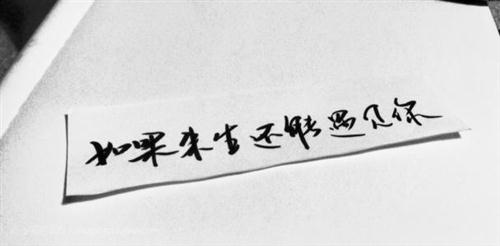 如果来生还能遇见你